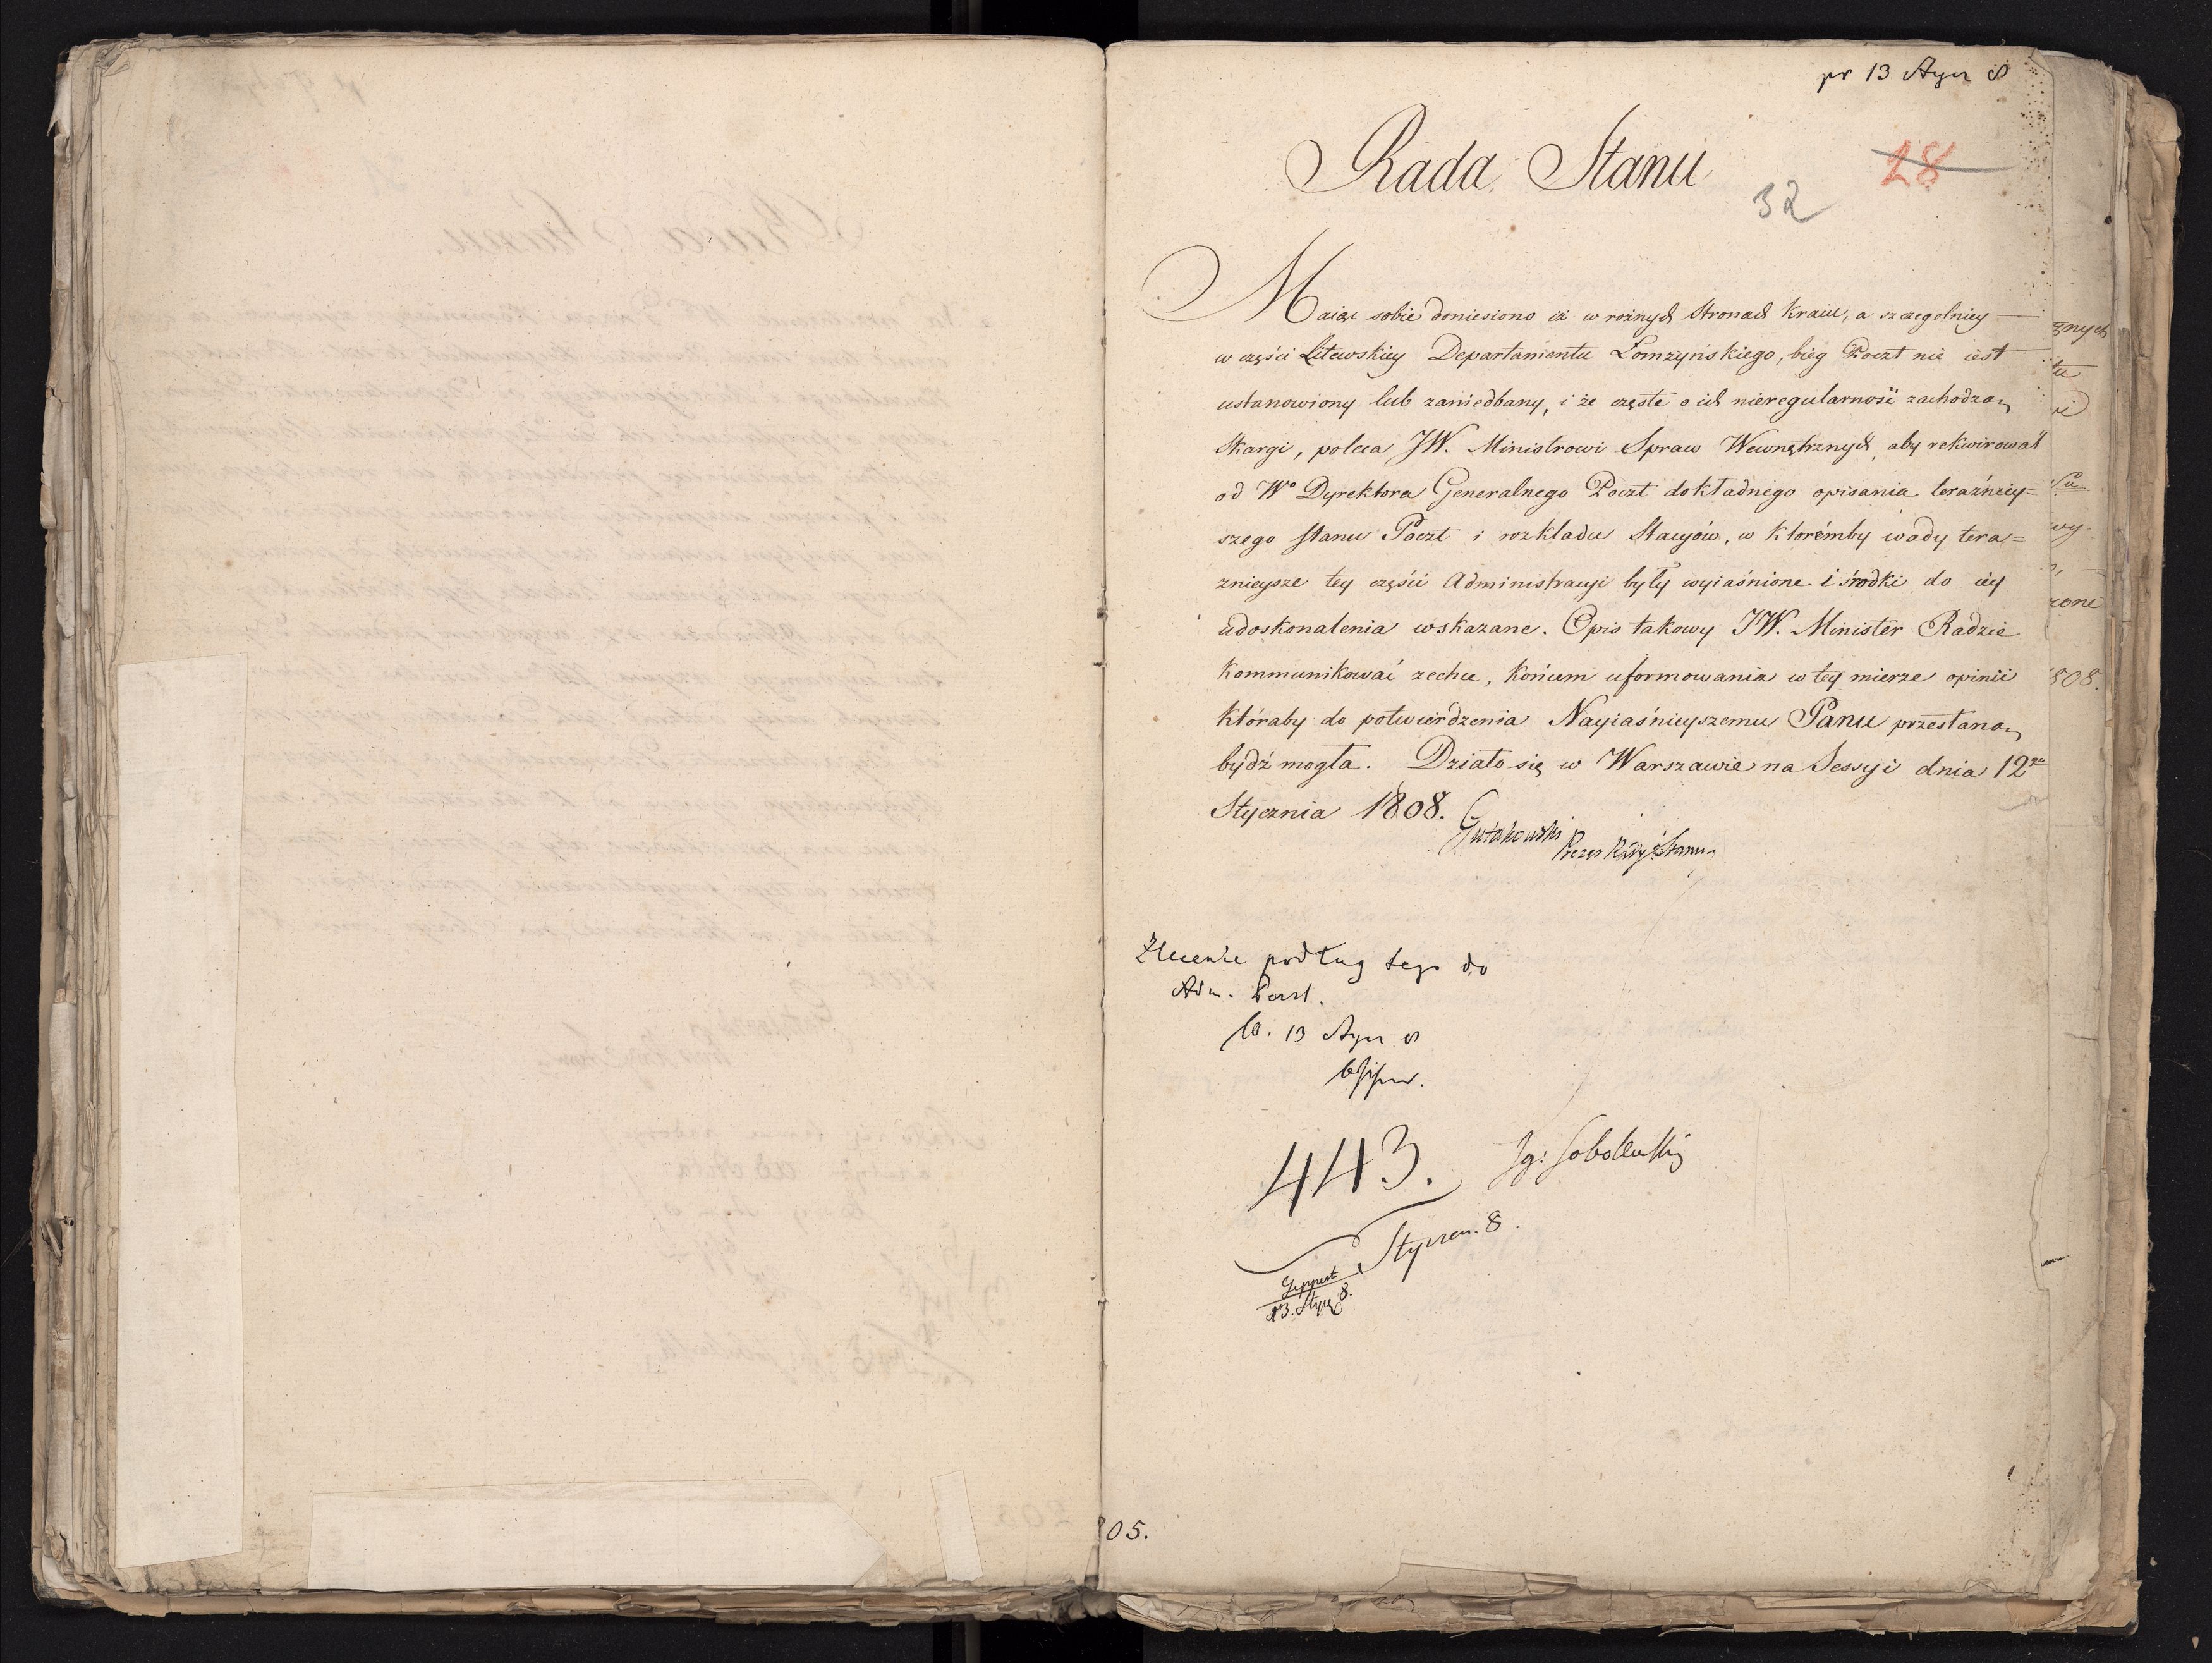 pr 13 Stycz 8
Rada Stanu
28
32
Maiąc sobie doniesiono iż w rożnych Stronach Kraiu, a szczegolniey
w części Litewskiey Departamentu Łomżyńskiego, bieg Poczt nie iest
ustanowiony lub zaniedbany, i że częste o ich nieregularność zachodzą
Skargi, poleca JW. Ministrowi Spraw Wewnętrznych, aby rekwirował
od Wo Dyrektora Generalnego Poczt dokładnego opisania teraźniey=
szego stanu Poczt i rozkładu Stacyów, w ktorémby wady tera=
znieysze tey części Administracyi były wyiaśnione i środki do iey
udoskonalenia wskazane. Opis takowy JW. Minister Radzie
Kommunikować zechce, końcem uformowania w tey mierze opinii
któraby do potwierdzenia Nayiaśnieyszemu Panu przesłaną
bydź mogła. Działo się w Warszawie na Sessyi dnia 12go
Stycznia 1808.
Gutakowski Prezes Rady Stanu
Zlecenie podług tego do
Adm. Poczt.
13 8
443. Ig: Sobolewski
Styczen. 8.
Geppert
13. Stycz 8.
05.